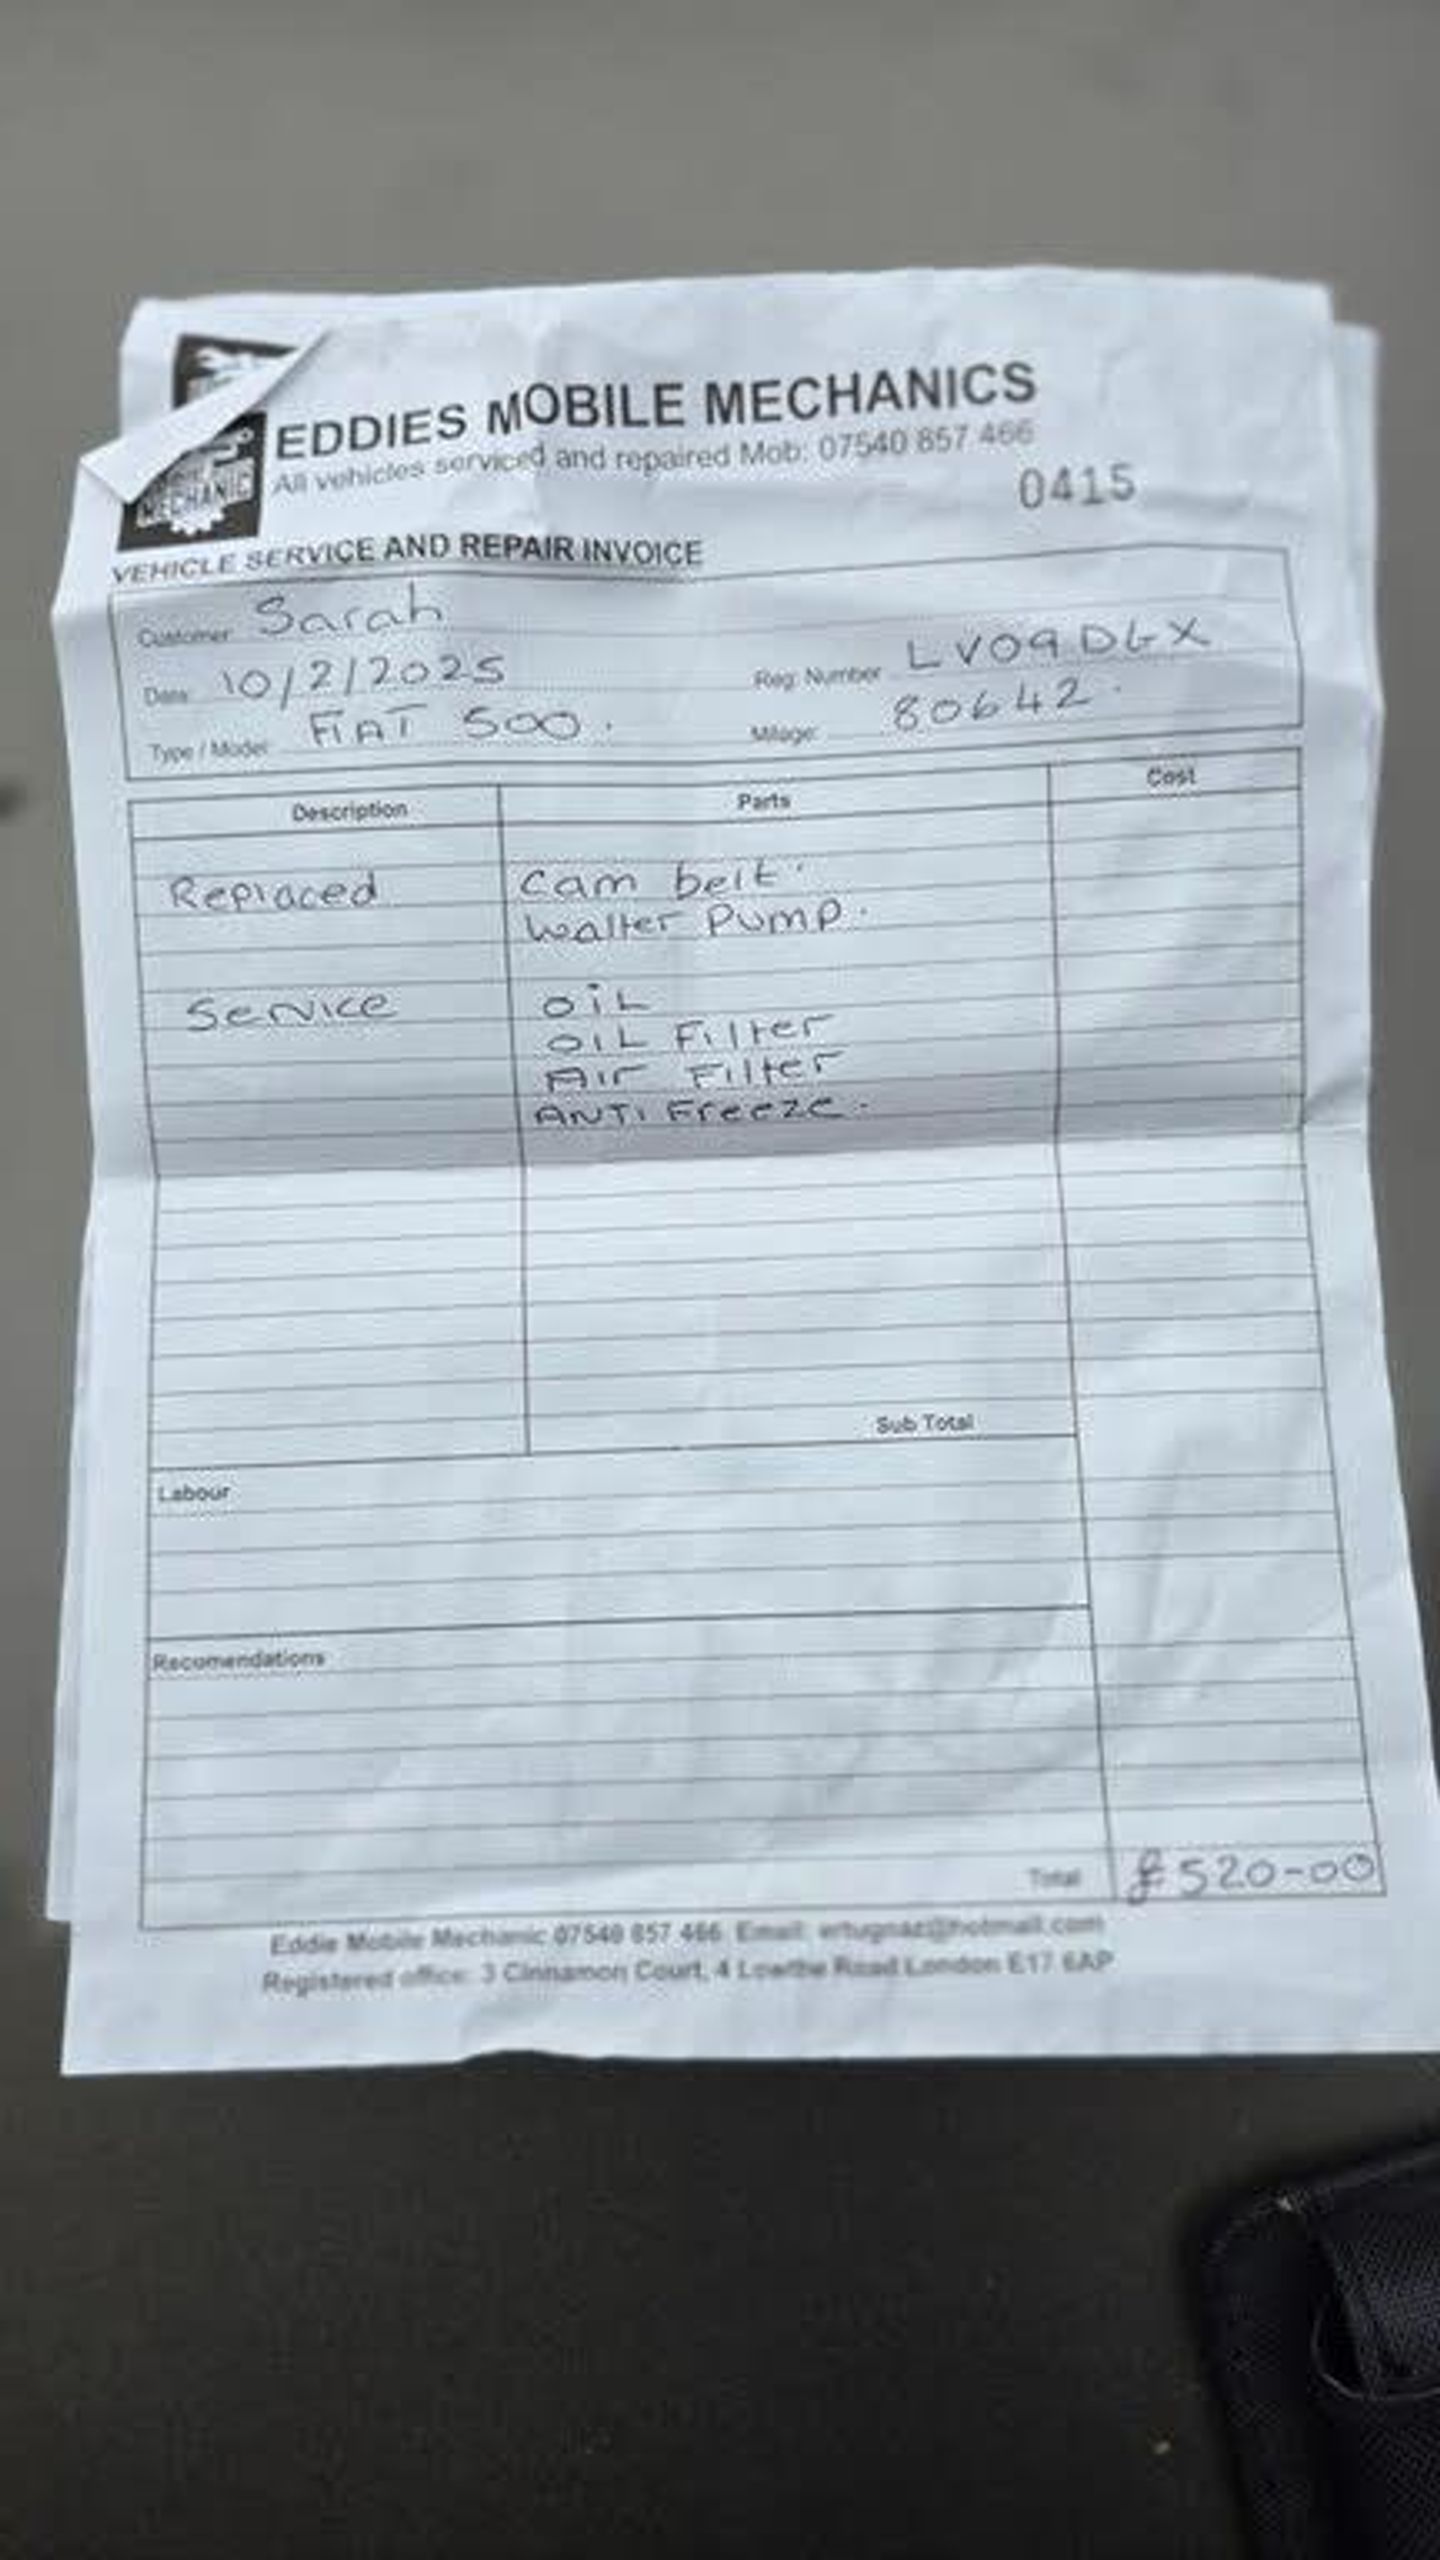 EDDIES MOBILE MECHANICS
All vehicles serviced and repaired Mob: 07540 857 466
MECHANIC
0415
VEHICLE SERVICE AND REPAIR INVOICE
Customer: Sarah
Date: 10/2/2025 Reg. Number LV09DGX
Type / Model: FIAT 500. Milage: 80642.
Description Parts Cost
Replaced Cam belt.
Walter Pump.
Service OIL
OIL Filter
Air Filter
ANTI Freeze.
Sub Total
Labour
Recomendations
Total £520-00
Eddie Mobile Mechanic 07540 857 466 Email: ertugnaz@hotmail.com
Registered office: 3 Cinnamon Court, 4 Lowthe Road London E17 6AP